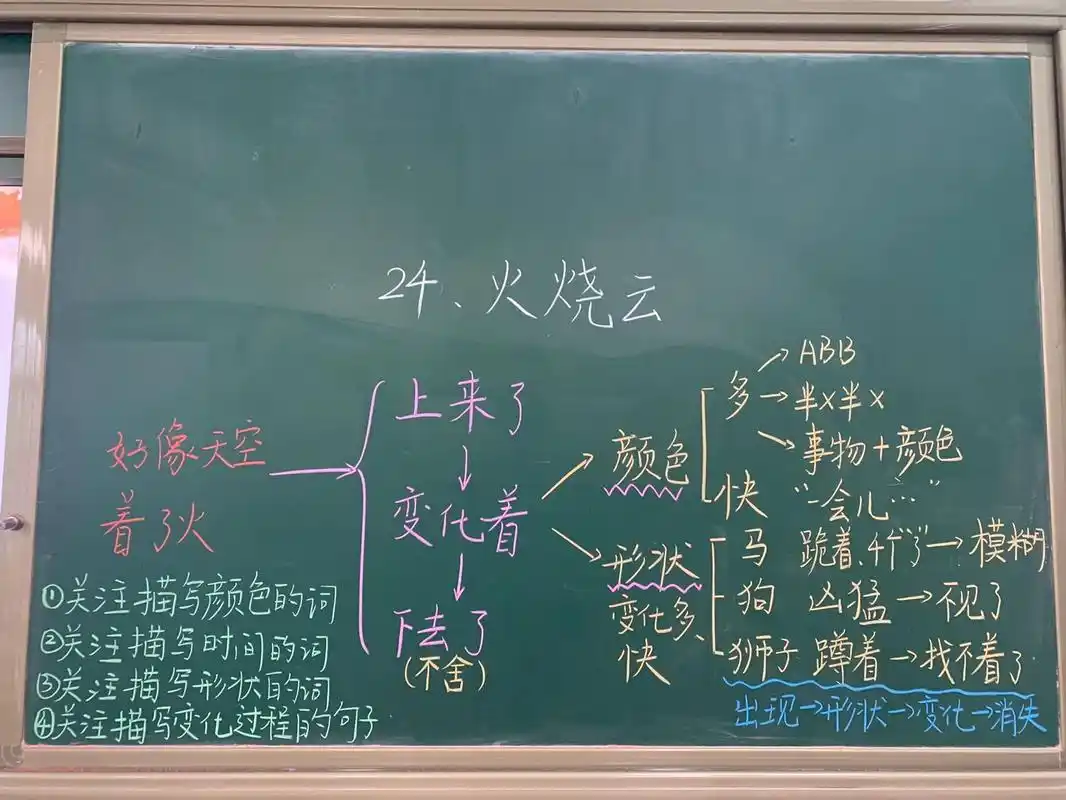 24、火烧云
好像天空
着了火
上来了
↓
变化着
↓
下去了
(不舍)
颜色
多→ABB
→半×半×
→事物+颜色
快 “一会儿……”
形状
变化多、
快
马 跪着、 →模糊
狗 凶猛→不见了
狮子 蹲着→找不着了
出现→形状→变化→消失
①关注描写颜色的词
②关注描写时间的词
③关注描写形状的词
④关注描写变化过程的句子